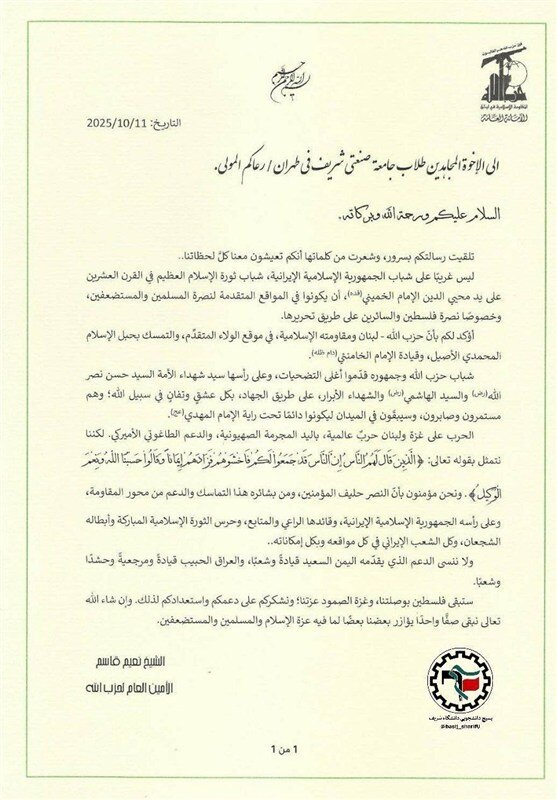 بسم الله الرحمن الرحيم
حزب الله
المقاومة الإسلامية في لبنان
الأمانة العامة
التاريخ: 2025/10/11
الى الإخوة المجاهدين طلاب جامعة صنعتي شريف في طهران / رعاكم المولى.
السلام عليكم ورحمة الله وبركاته.
تلقيت رسالتكم بسرور، وشعرت من كلماتها أنكم تعيشون معنا كلَّ لحظاتنا..
ليس غريبًا على شباب الجمهورية الإسلامية الإيرانية، شباب ثورة الإسلام العظيم في القرن العشرين
على يد محيي الدين الإمام الخميني(قده)، أن يكونوا في المواقع المتقدمة لنصرة المسلمين والمستضعفين،
وخصوصًا نصرة فلسطين والسائرين على طريق تحريرها.
أؤكد لكم بأنّ حزب الله - لبنان ومقاومته الإسلامية، في موقع الولاء المتقدّم، والتمسك بحبل الإسلام
المحمدي الأصيل، وقيادة الإمام الخامنئي(دام ظله).
شباب حزب الله وجمهوره قدّموا أغلى التضحيات، وعلى رأسها سيد شهداء الأمة السيد حسن نصر
الله(رض) والسيد الهاشمي(رض) والشهداء الأبرار، على طريق الجهاد، بكل عشقٍ وتفانٍ في سبيل الله؛ وهم
مستمرون وصابرون، وسيبقَون في الميدان ليكونوا دائمًا تحت راية الإمام المهدي(عج).
الحرب على غزة ولبنان حربٌ عالمية، باليد المجرمة الصهيونية، والدعم الطاغوتي الأميركي. لكننا
نتمثل بقوله تعالى: ﴿الَّذِينَ قَالَ لَهُمُ النَّاسُ إِنَّ النَّاسَ قَدْ جَمَعُوا لَكُمْ فَاخْشَوْهُمْ فَزَادَهُمْ إِيمَانًا وَقَالُوا حَسْبُنَا اللَّهُ وَنِعْمَ
الْوَكِيلُ﴾. ونحن مؤمنون بأنّ النصر حليف المؤمنين، ومن بشائره هذا التماسك والدعم من محور المقاومة،
وعلى رأسه الجمهورية الإسلامية الإيرانية، وقائدها الراعي والمتابع، وحرس الثورة الإسلامية المباركة وأبطاله
الشجعان، وكل الشعب الإيراني في كل مواقعه وبكل إمكاناته..
ولا ننسى الدعم الذي يقدّمه اليمن السعيد قيادةً وشعبًا، والعراق الحبيب قيادةً ومرجعيةً وحشدًا
وشعبًا.
ستبقى فلسطين بوصلتنا، وغزة الصمود عزتنا؛ ونشكركم على دعمكم واستعدادكم لذلك. وإن شاء الله
تعالى نبقى صفًّا واحدًا يؤازر بعضنا بعضًا لما فيه عزة الإسلام والمسلمين والمستضعفين.
الشيخ نعيم قاسم
الأمين العام لحزب الله
بسیج دانشجویی دانشگاه شریف
@basij_sharif
1 من 1